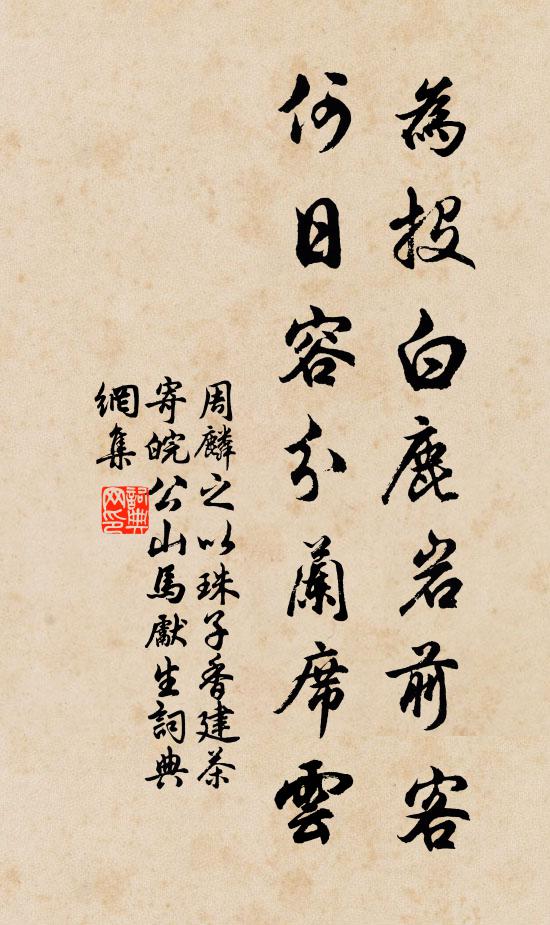 為投白鹿岩前客
何日容分蘭席雲
周麟之以珠子香建茶
寄皖公山馬獻生詞典
網集
詞典網印